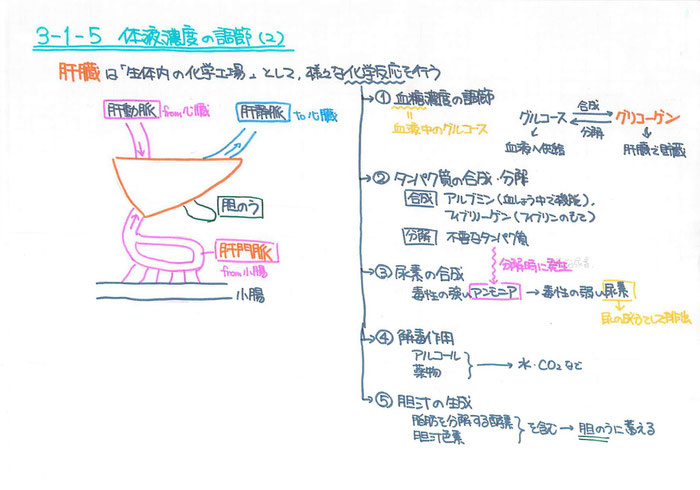 3-1-5 体液濃度の調節(2)
肝臓は「生体内の化学工場」として、様々な化学反応を行う
肝動脈 from心臓
肝静脈 to心臓
胆のう
肝門脈
from小腸
小腸
① 血糖濃度の調節
=
血液中のグルコース
グルコース 合成 分解 グリコーゲン
血液へ供給
肝臓で貯蔵
② タンパク質の合成・分解
合成 アルブミン(血しょう中で機能)、
フィブリノーゲン(フィブリンのもと)
分解 不要なタンパク質
分解時に発生
③ 尿素の合成
毒性の強いアンモニア → 毒性の弱い尿素
尿の成分として排出
④ 解毒作用
アルコール
薬物
→ 水・CO2など
⑤ 胆汁の生成
脂肪を分解する酵素
胆汁色素
を含む → 胆のうに蓄える